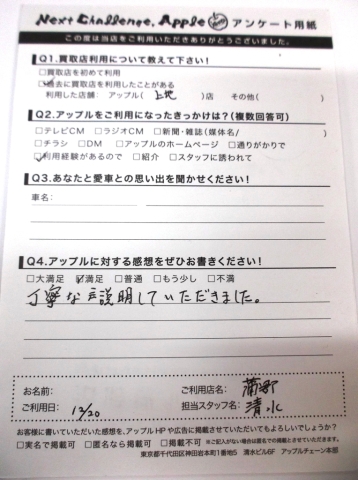 Next Challenge. Apple アンケート用紙
この度は当店をご利用いただきありがとうございました。
Q1.買取店利用について教えて下さい!
□買取店を初めて利用
☑過去に買取店を利用したことがある
利用した店舗: アップル( 上地 )店 その他( )
Q2.アップルをご利用になったきっかけは?(複数回答可)
□テレビCM □ラジオCM □新聞・雑誌(媒体名/ )
□チラシ □DM □アップルのホームページ □通りがかりで
☑利用経験があるので □紹介 □スタッフに誘われて
Q3.あなたと愛車との思い出を聞かせください!
車名:
Q4.アップルに対する感想をぜひお書きください!
□大満足 ☑満足 □普通 □もう少し □不満
丁寧な説明していただきました。
お名前: ご利用店名: 蒲郡
ご利用日: 12/20 担当スタッフ名: 清水
お客様に書いていただいた感想を、アップルHPや広告に掲載させていただいてもよろしいでしょうか?
□実名で掲載可 □匿名なら掲載可 □掲載不可 ※ご記入がない場合は匿名での掲載とさせていただきます。
東京都千代田区神田岩本町1番地5 清水ビル6F アップルチェーン本部